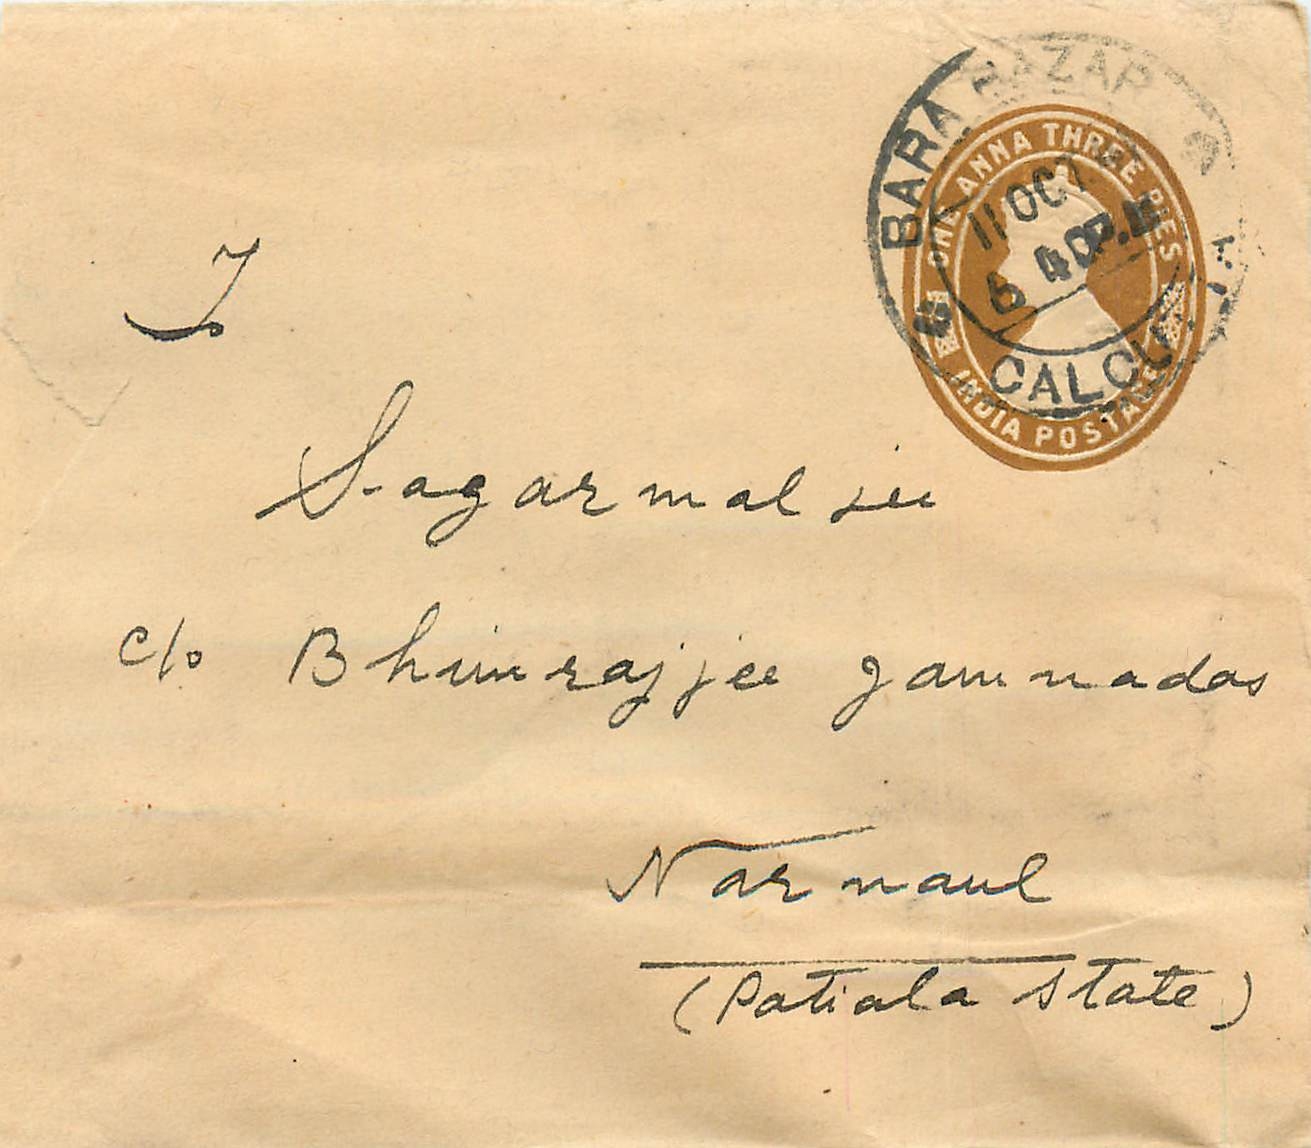 BARA BAZAR
ONE ANNA THREE PIES
11 OCT
4 0 P.M
CALCUTTA
INDIA POSTAGE
To
Sagarmal jee
c/o Bhimrajjee Jamnadas
Narnaul
(Patiala State)